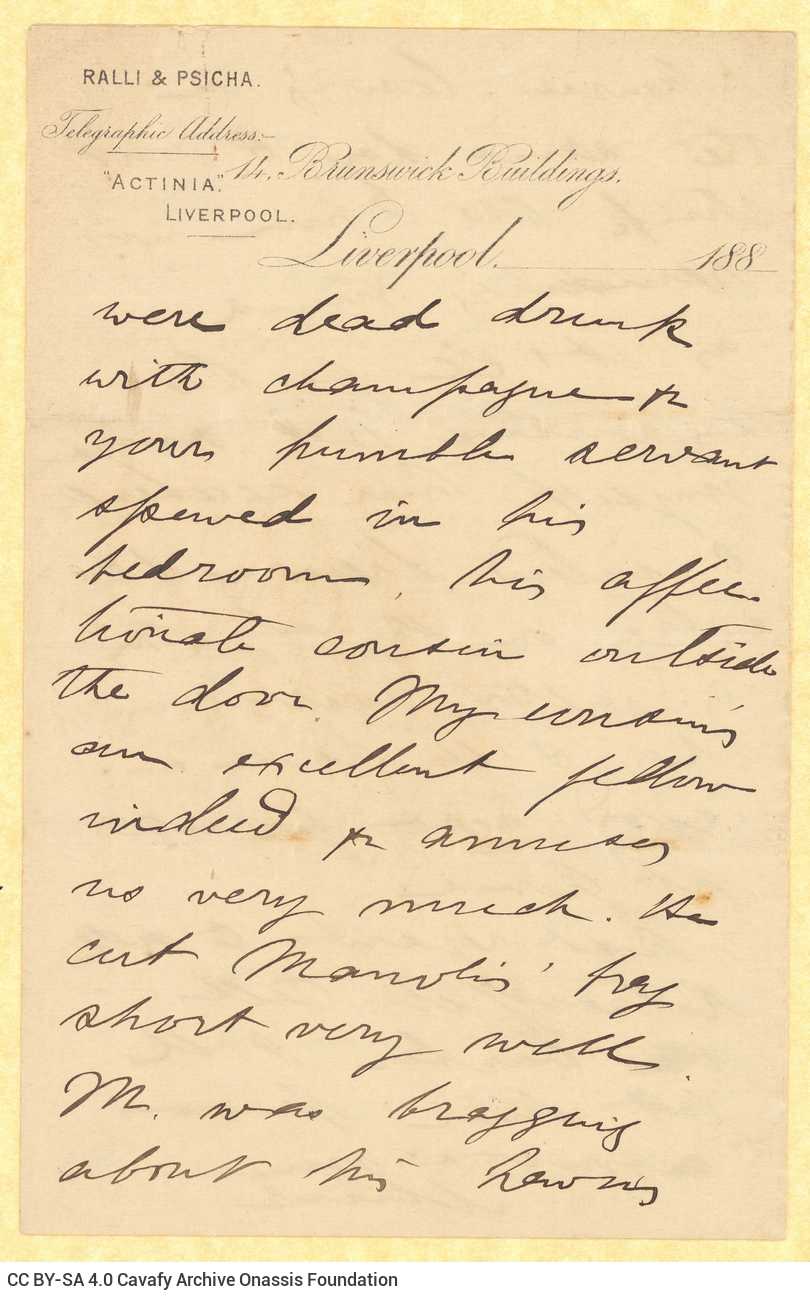 RALLI & PSICHA.
Telegraphic Address:-
"ACTINIA".
LIVERPOOL.
14, Brunswick Buildings,
Liverpool. 188
were dead drunk
with champagne &
your humble servant
spewed in his
bedroom, his affec
tionate cousin outside
the door. My cousin's
an excellent fellow
indeed & amuses
us very much. He
cut Manolis' brag
short very well.
M. was bragging
about his having
CC BY-SA 4.0 Cavafy Archive Onassis Foundation